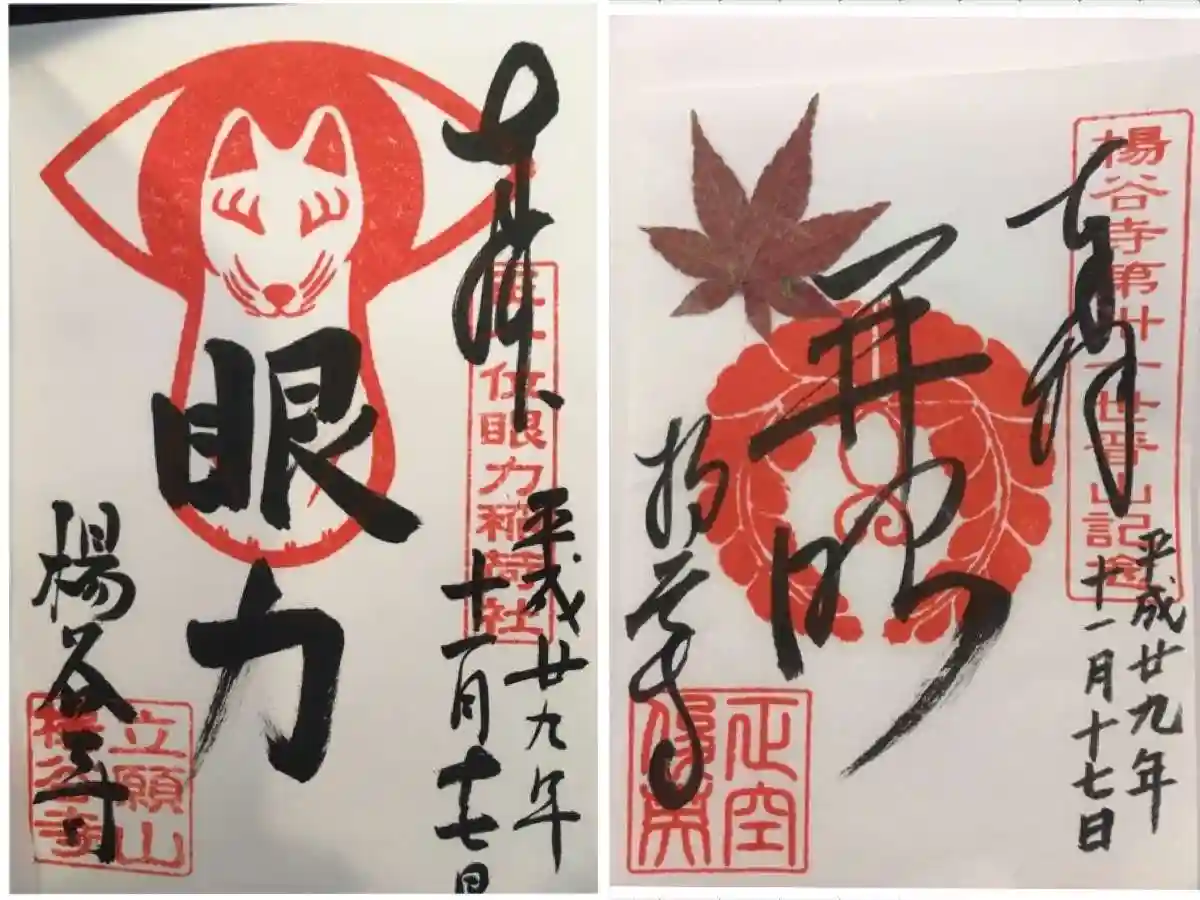 奉拝
正一位眼力稲荷社
平成廿九年
十一月十七日
眼力
楊谷寺
立願山
楊谷寺
楊谷寺第卅一世晋山記念
奉拝
平成廿九年
十一月十七日
開明
楊谷寺
正空